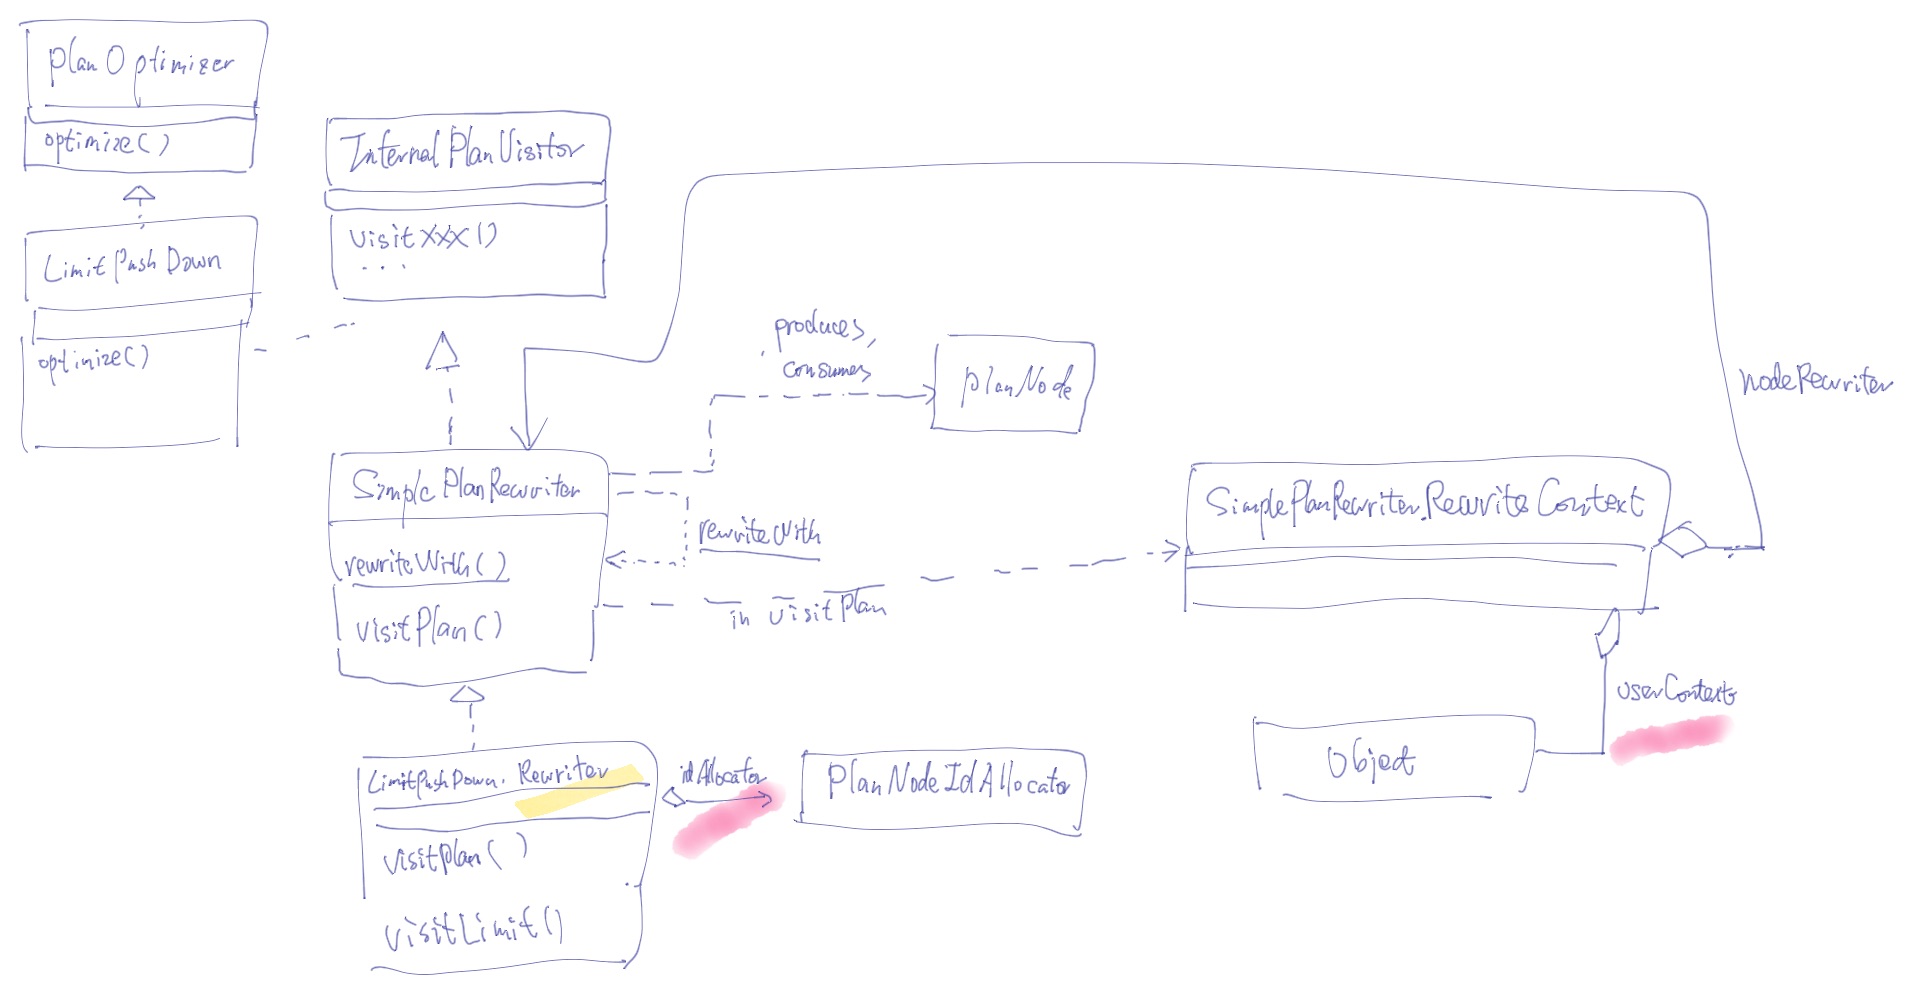 PlanOptimizer
optimize()
LimitPushDown
optimize()
InternalPlanVisitor
visitXXX()
...
produces,
consumes
PlanNode
nodeRewriter
SimplePlanRewriter
rewriteWith()
visitPlan()
rewriteWith
in visitPlan
SimplePlanRewriter.RewriteContext
userContext
Object
LimitPushDown.Rewriter
visitPlan()
visitLimit()
idAllocator
PlanNodeIdAllocator